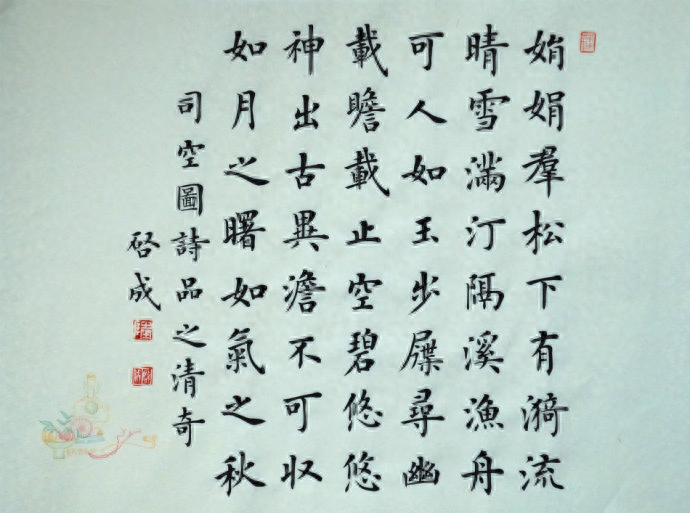 娟娟羣松下有漪流
晴雪滿汀隔溪漁舟
可人如玉步屧尋幽
載瞻載止空碧悠悠
神出古異澹不可収
如月之曙如氣之秋
司空圖詩品之清奇
啓成